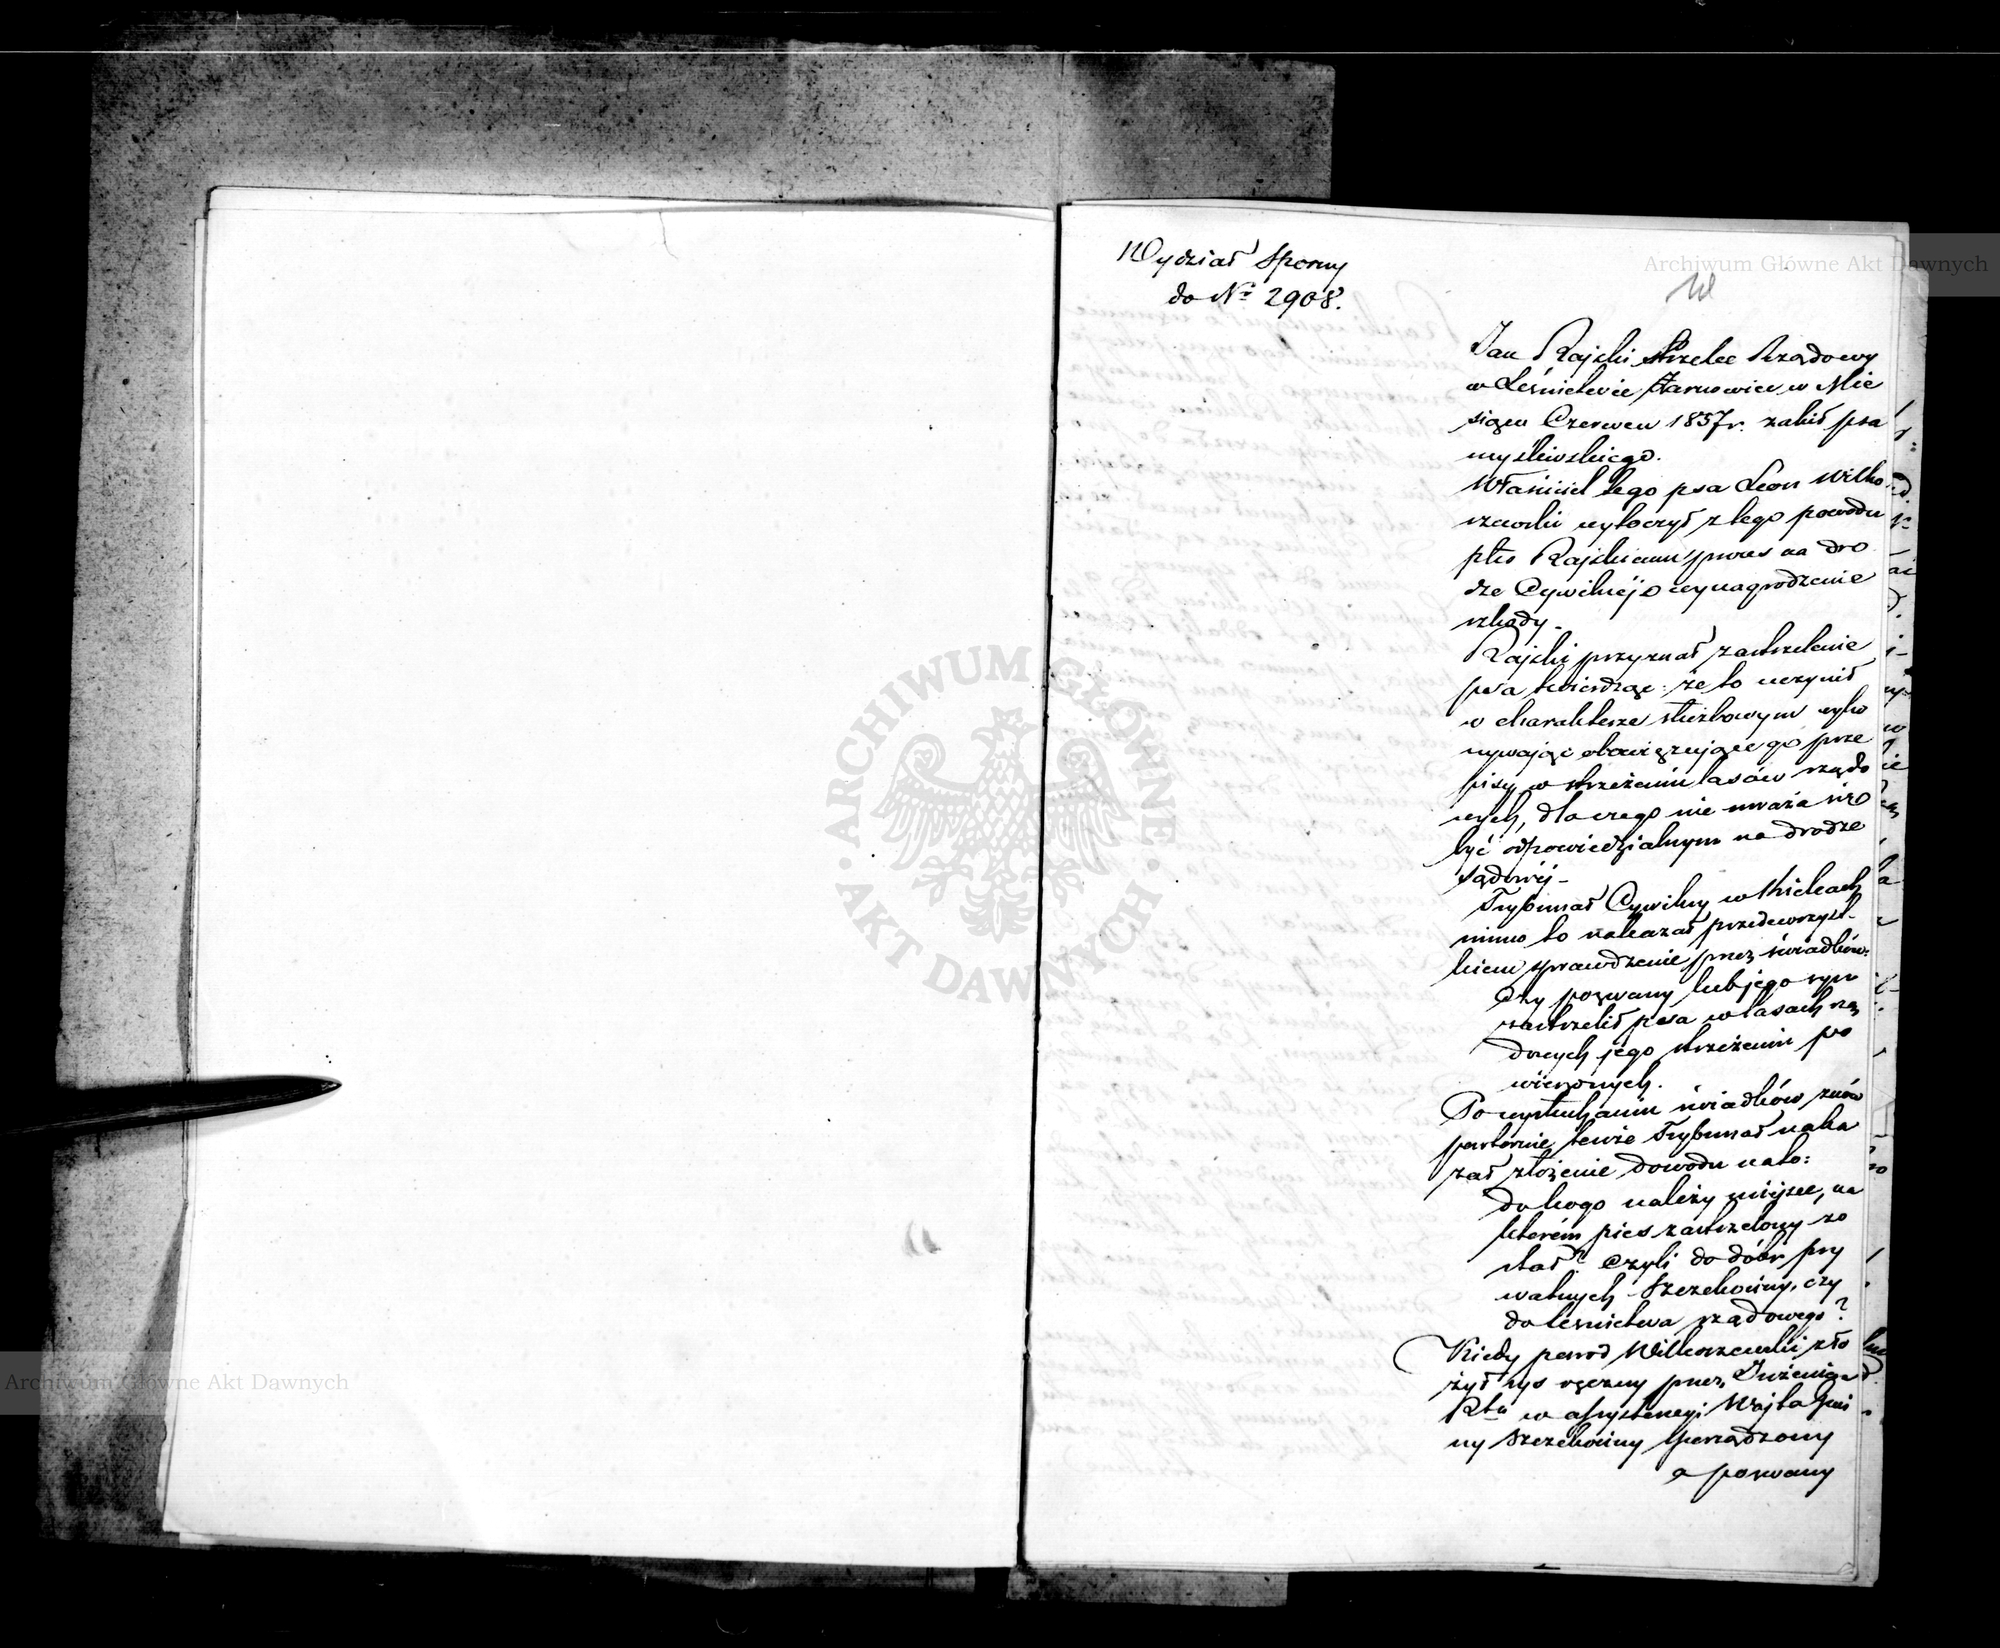 Wydział Sporny
do Nr 2908.
Jan Rajski Strzelec Rządowy
w Leśnictwie Żarnowiec w Mie
siącu Czerwcu 1857 r. zabił psa
myśliwskiego.
Właściciel tego psa Leon Wilko
szewski wytoczył z tego powodu
pko Rajskiemu proces na dro
dze Cywilnéj o wynagrodzenie
szkody.
Rajski przyznał zastrzelenie
psa twierdząc: że to uczynił
w charakterze służbowym wyko
nywając obowiązującego prze
pisy w strzeżeniu lasów rządo
wych, dla czego nie uważa się
być odpowiedzialnym na drodze
sądowéj –
Trybunał Cywilny w Kielcach
mimo to nakazał przedewszyst-
kiem sprawdzenie przez świadków:
Czy pozwany lub jego syn
zastrzelił psa w lasach rzą
dowych jego strzeżeniu po
wierzonych.
Po wysłuchaniu świadków znów
powtórnie tenże Trybunał naka
zał złożenie dowodu na to:
do kogo należy miejsce, na
którém pies zastrzelony zo
stał? czyli do dóbr pry
watnych Szczekociny, czy
do leśnictwa rządowego?
Kiedy powód Wilkoszewski zło
żył rys ręczny przez Inżeniera
Rtu w assystencyi Wójta Gmi
ny Szczekociny sporządzony
a pozwany
Archiwum Główne Akt Dawnych
Archiwum Główne Akt Dawnych
ARCHIWUM GŁÓWNE AKT DAWNYCH